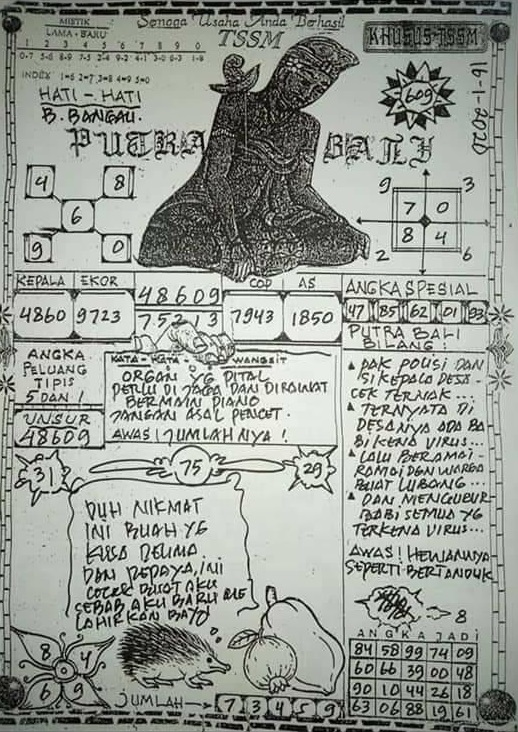 MISTIK
LAMA - BARU
1 2 3 4 5 6 7 8 9 0
0-7 5-6 8-9 7-5 2-4
INDEX 1=6 2=7 3=8 4=9 5=0
Semoga Usaha Anda Berhasil
TSSM
KHUSUS TSSM
HATI - HATI
B. BANGALI.
609
16-1-2020
PUTRA BALI
4 8
6
9 0
9 3
7 0
8 4
2 6
KEPALA EKOR
4860 9723
48609
75213
COP AS
7943 1850
ANGKA SPESIAL
47 85 62 01 93
PUTRA BALI
BILANG!
PAK POLISI DAN
SI KEPALA DESA -
CEK TERNAK...
TERNYATA DI
DESANYA ADA BA
BI KENA VIRUS...
LALU BERAMAI -
RAMAI DGN WARGA
BUAT LUBANG...
DAN MENGUBUR
BABI SEMUA YG
TERKENA VIRUS...
AWAS! HEWANNYA
SEPERTI BERTANDUK
ANGKA
PELUANG
TIPIS
5 DAN 1
UNSUR
48609
KATA - KATA WANGSIT
ORGAN YG PITAL
PERLU DI JAGA DAN DIRAWAT
BERMAIN PIANO
JANGAN ASAL PENCET.
AWAS! JUMLAHNYA!
31 75 29
DUH NIKMAT
INI BUAH YG
KUSA DELIMA
DAN PEPAYA, INI
COCOK BUAT AKU
SEBAB AKU BARU
LAHIRKAN BAYO
8 4
6 9
JUMLAH → 7 3 4 5 9
8
ANGKA JADI
84 58 99 74 09
60 66 39 00 48
90 10 44 26 18
63 06 88 19 61